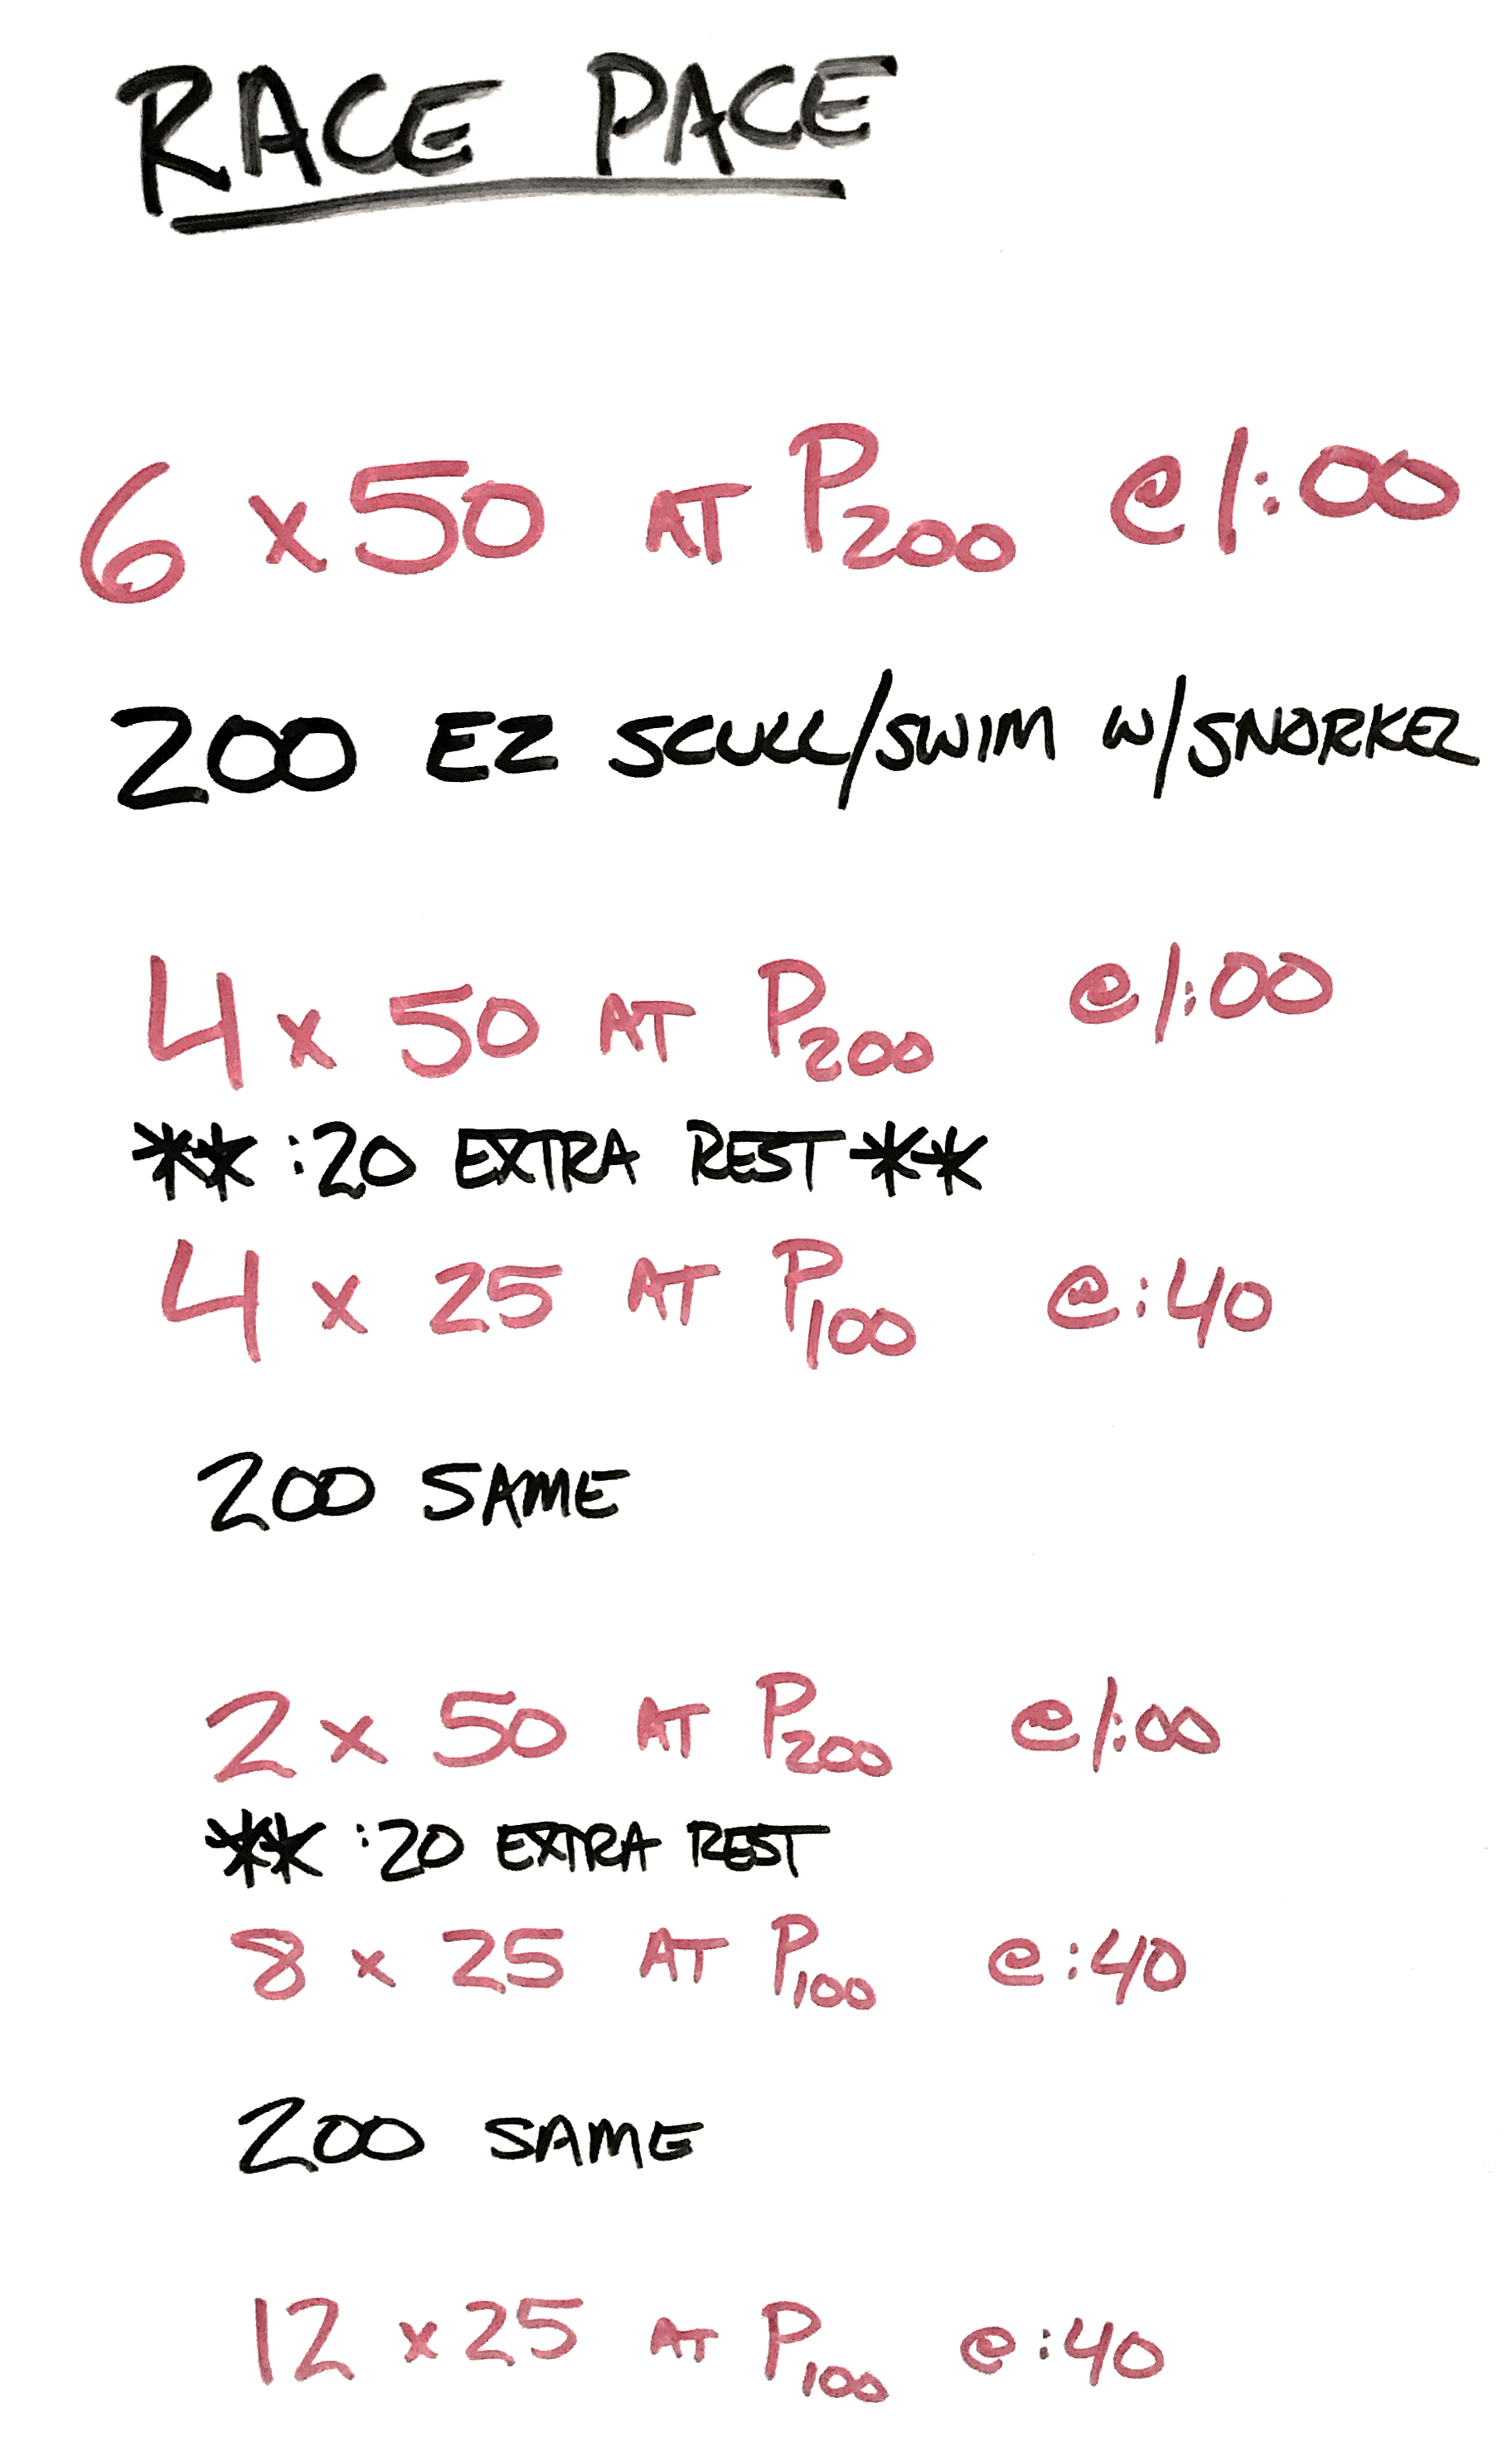 RACE PACE
6 x 50 AT P200 @ 1:00
200 EZ SCULL/SWIM W/SNORKEL
4 x 50 AT P200 @ 1:00
** :20 EXTRA REST **
4 x 25 AT P100 @ :40
200 SAME
2 x 50 AT P200 @ 1:00
** :20 EXTRA REST
8 x 25 AT P100 @ :40
200 SAME
12 x 25 AT P100 @ :40